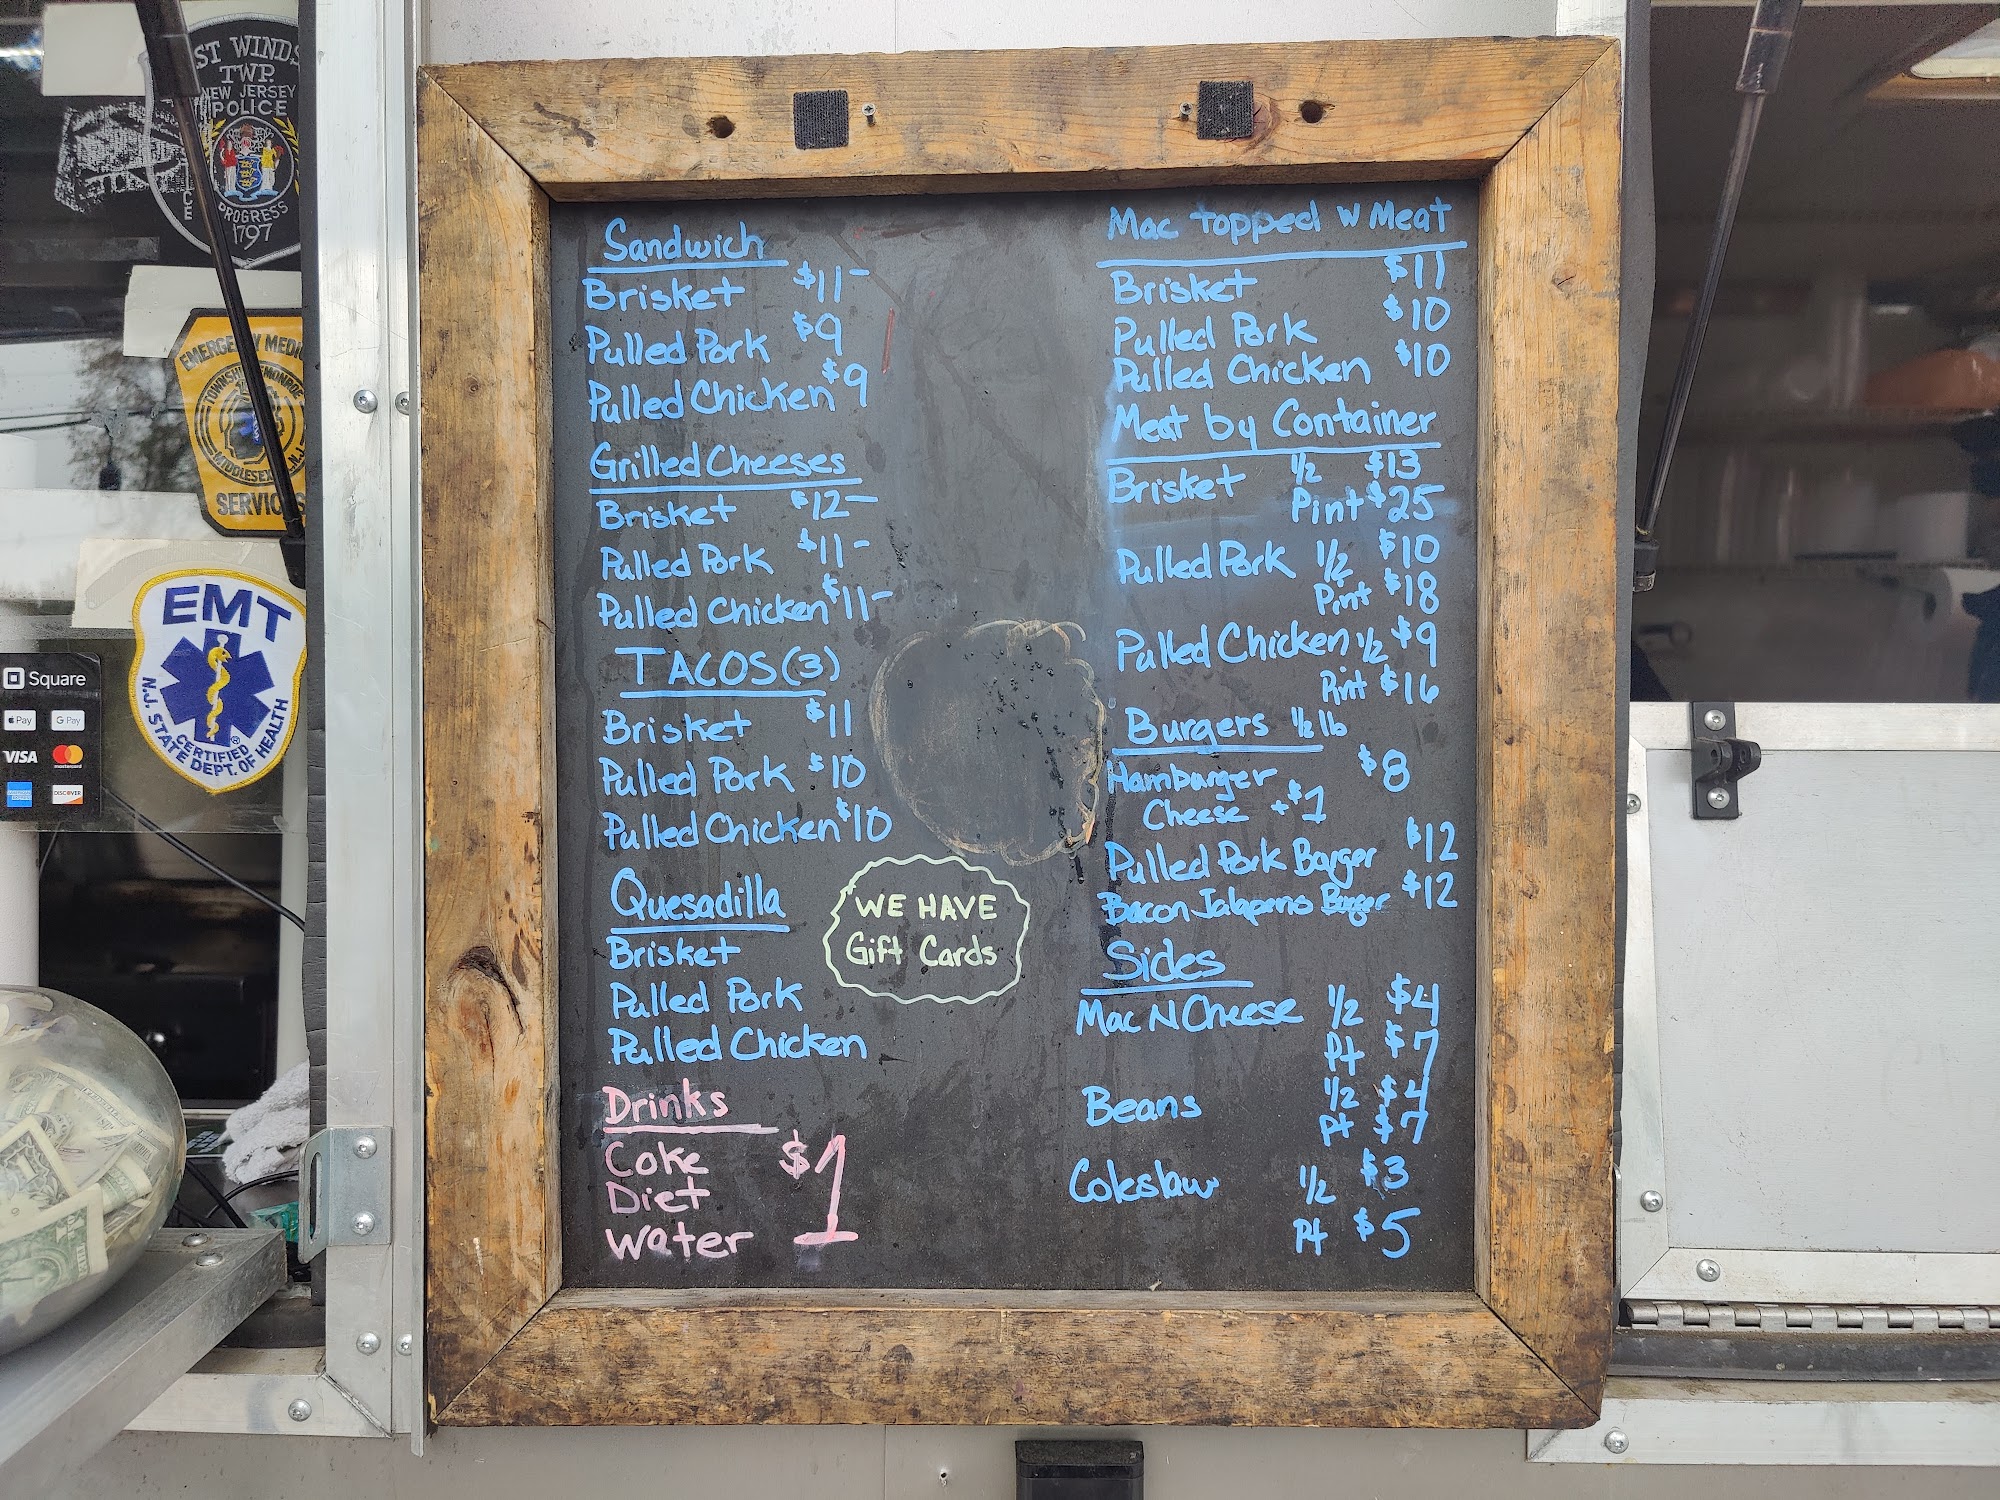 ST WINDS
TWP.
NEW JERSEY
POLICE
PROGRESS
1797
EMERGENCY MEDIC
TOWNSHIP MONROE
MIDDLESEX N.J.
SERVICES
EMT
N.J. STATE DEPT. OF HEALTH
CERTIFIED
Square
Pay
G Pay
VISA
mastercard
DISCOVER
Sandwich
Brisket $11-
Pulled Pork $9
Pulled Chicken $9
Grilled Cheeses
Brisket $12-
Pulled Pork $11-
Pulled Chicken $11-
TACOS (3)
Brisket $11
Pulled Pork $10
Pulled Chicken $10
Quesadilla
Brisket
Pulled Pork
Pulled Chicken
Drinks
Coke $1
Diet
Water
WE HAVE
Gift Cards
Mac topped w Meat
Brisket $11
Pulled Pork $10
Pulled Chicken $10
Meat by Container
Brisket 1/2 $13
Pint $25
Pulled Pork 1/2 $10
Pint $18
Pulled Chicken 1/2 $9
Pint $16
Burgers 1/2 lb
Hamburger $8
Cheese +$1
Pulled Pork Burger $12
Bacon Jalapeno Burger $12
Sides
Mac N Cheese 1/2 $4
Pt $7
Beans 1/2 $4
Pt $7
Coleslaw 1/2 $3
Pt $5